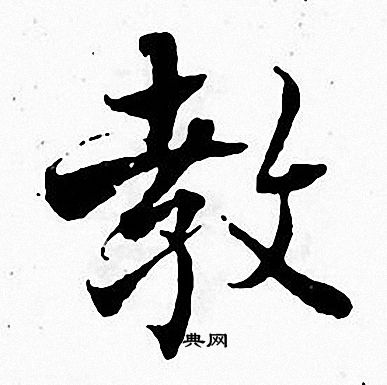 教
典网